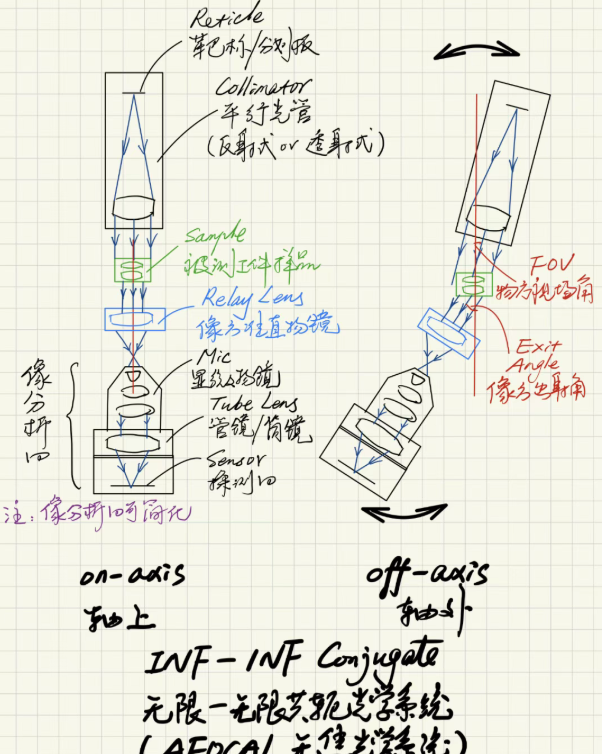 Reticle
靶标/分划板
Collimator
平行光管
(反射式 or 透射式)
Sample
被测工件样品
Relay Lens
像方准直物镜
Mic
显微物镜
Tube Lens
管镜/筒镜
Sensor
探测口
像分析口
注：像分析口可简化
FOV
物方视场角
Exit
Angle
像方出射角
on-axis
轴上
off-axis
轴外
INF-INF Conjugate
无限-无限共轭光学系统
(AFOCAL 无焦光学系统)